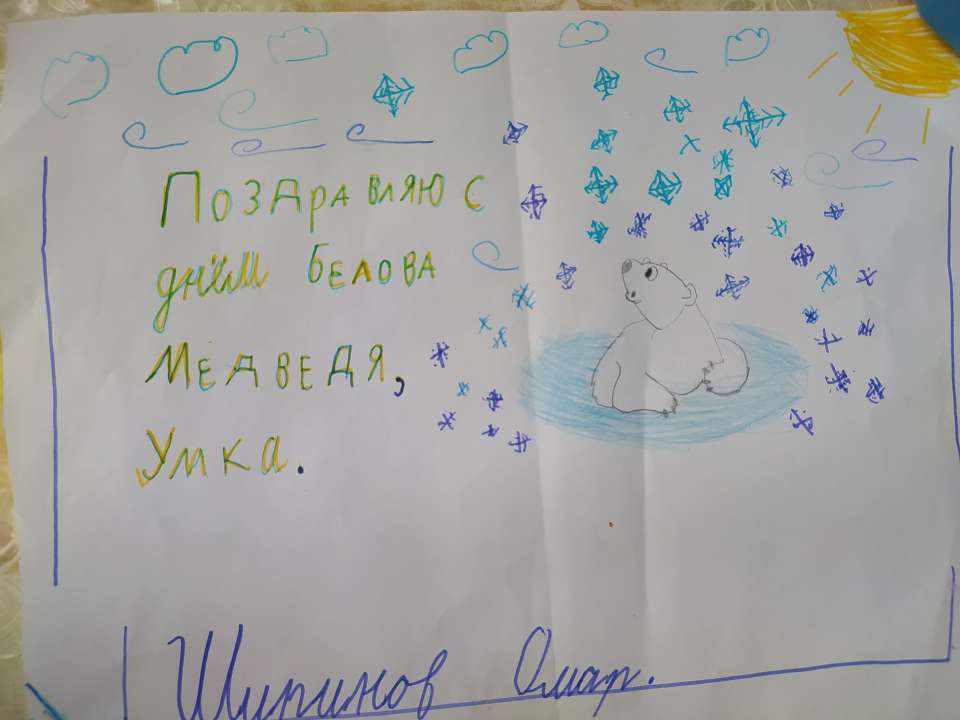 Поздравляю с
днём белова
медведя,
Умка.
Шипинов Омар.